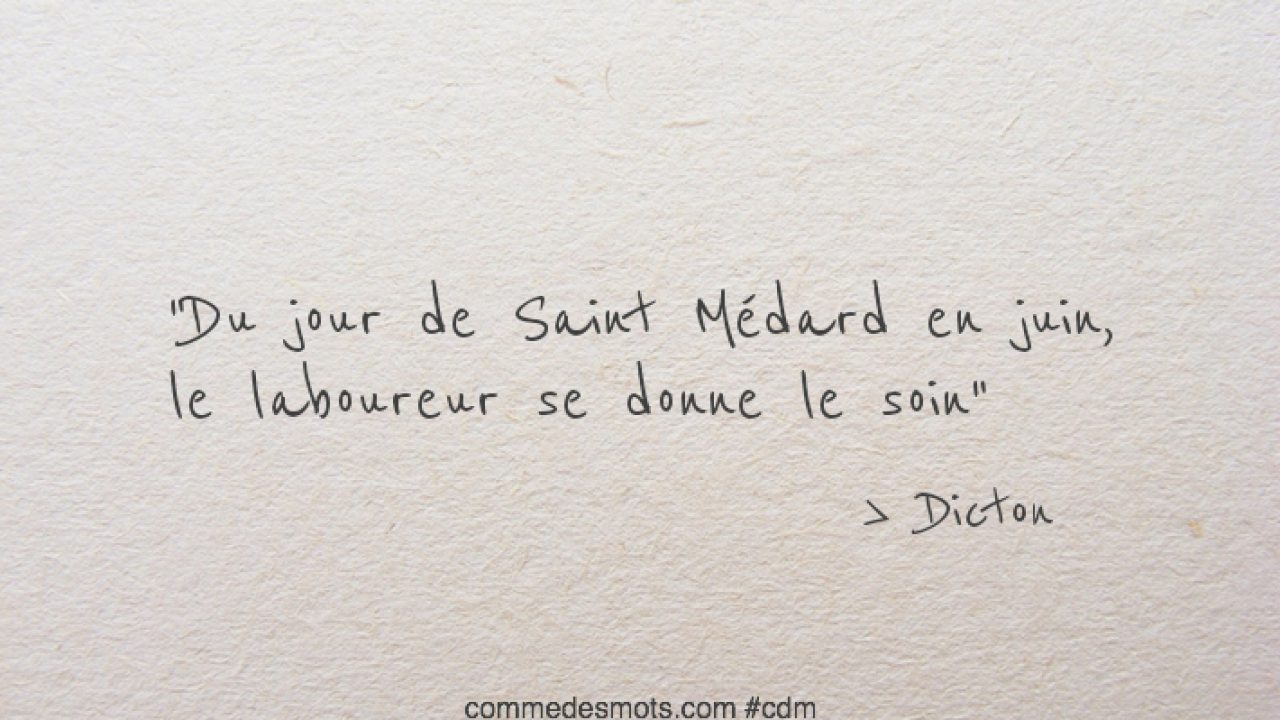 "Du jour de Saint Médard en juin,
le laboureur se donne le soin"
> Dicton
commedesmots.com #cdm